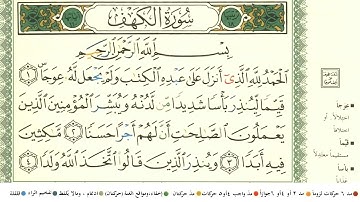 سُورَةُ الكَهْفِ
بِسْمِ اللَّهِ الرَّحْمَٰنِ الرَّحِيمِ
الْحَمْدُ لِلَّهِ الَّذِي أَنزَلَ عَلَىٰ عَبْدِهِ الْكِتَٰبَ وَلَمْ يَجْعَل لَّهُ عِوَجَا ۜ ١
قَيِّمًا لِّيُنذِرَ بَأْسًا شَدِيدًا مِّن لَّدُنْهُ وَيُبَشِّرَ الْمُؤْمِنِينَ الَّذِينَ
يَعْمَلُونَ الصَّٰلِحَٰتِ أَنَّ لَهُمْ أَجْرًا حَسَنًا ٢ مَّٰكِثِينَ
فِيهِ أَبَدًا ٣ وَيُنذِرَ الَّذِينَ قَالُوا اتَّخَذَ اللَّهُ وَلَدًا ٤
عوجا
اختلالاً، أو
اختلافاً
قيما
مستقيماً معتدلاً
بأسا
عذاباً
مد ٦ حركات لزوماً
مد ٢ أو ٤ أو ٦ جوازاً
مد واجب ٤ أو ٥ حركات
مد حركتان
إخفاء، ومواقع الغنة (حركتان)
إدغام، وما لا يُلفظ
تفخيم الراء
قلقلة